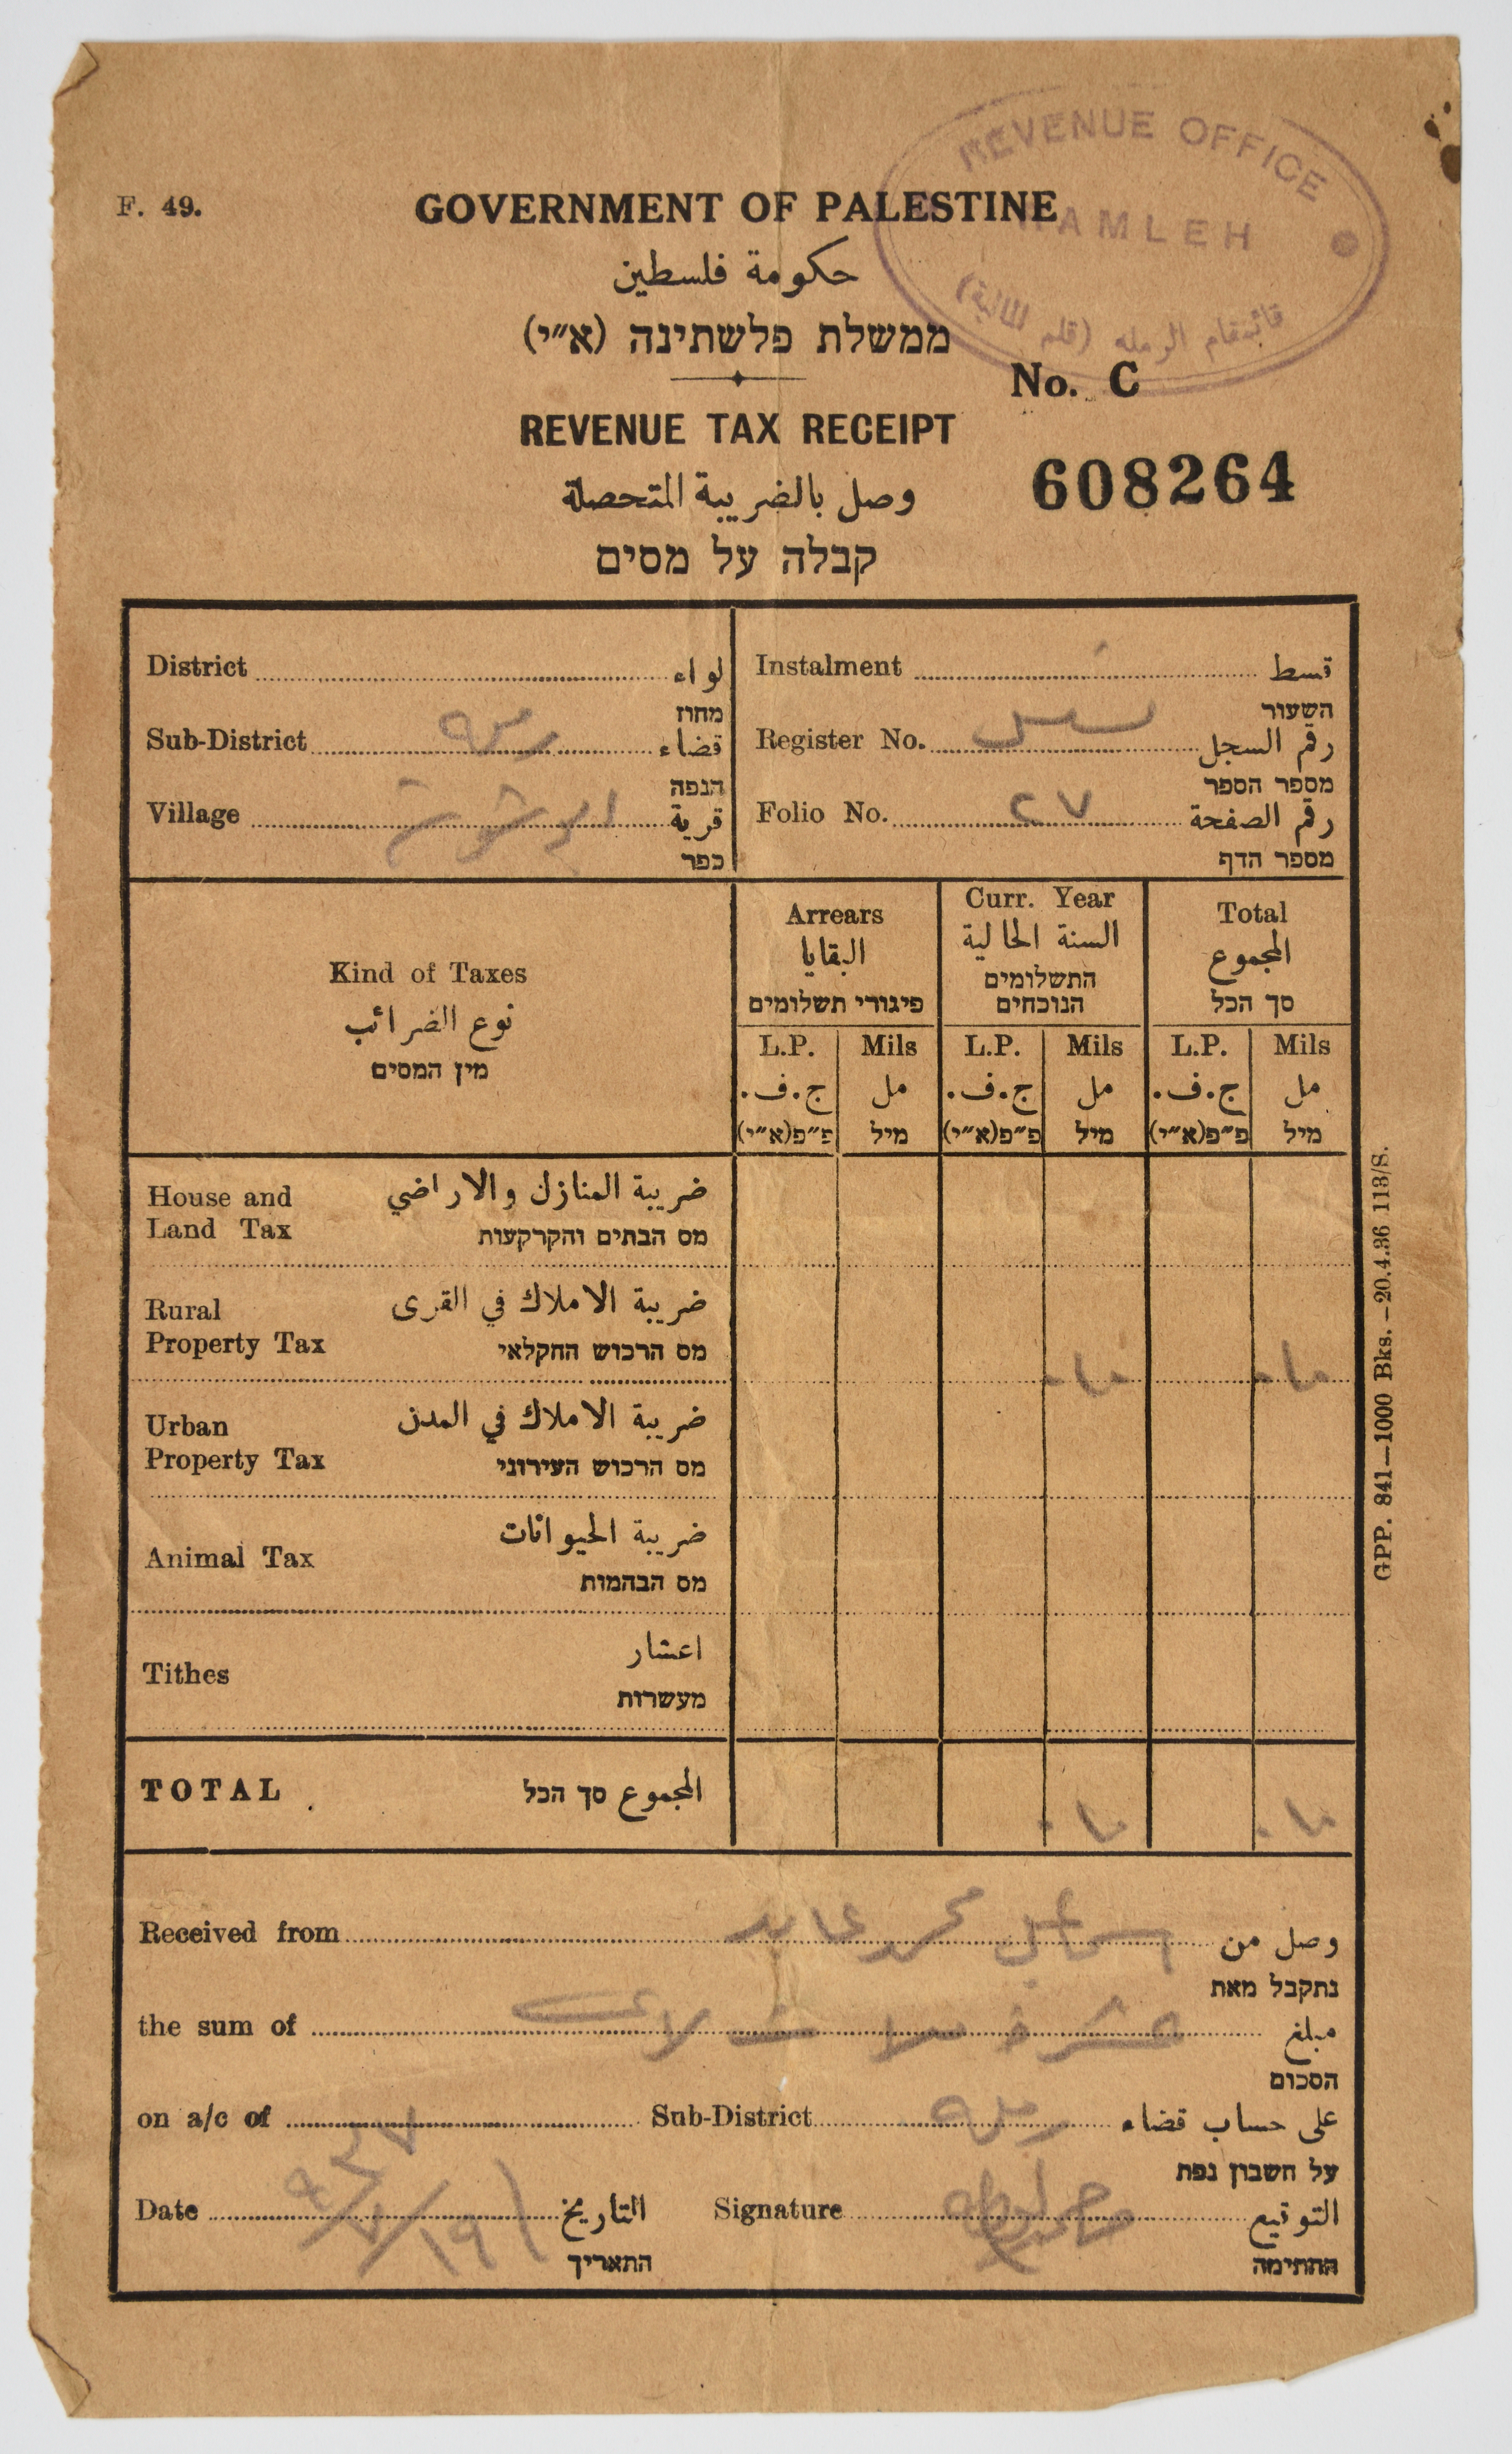 REVENUE OFFICE
RAMLEH
قائمقام الرمله (قلم المالية)
F. 49.
GOVERNMENT OF PALESTINE
حكومة فلسطين
ממשלת פלשתינה (א״י)
No. C
REVENUE TAX RECEIPT
608264
وصل بالضريبة المتحصلة
קבלה על מסים
District لواء
מחוז
Sub-District رمله قضاء
הנפה
Village قرية
כפר
Instalment قسط
השעור
Register No. رقم السجل
מספר הספר
Folio No. ٢٧ رقم الصفحة
מספר הדף
Kind of Taxes
نوع الضرائب
מין המסים
Arrears
البقايا
פיגורי תשלומים
Curr. Year
السنة الحالية
התשלומים
הנוכחים
Total
المجموع
סך הכל
L.P. Mils L.P. Mils L.P. Mils
ج.ف. مل ج.ف. مل ج.ف. مل
פ״פ(א״י) מיל פ״פ(א״י) מיל פ״פ(א״י) מיל
House and
Land Tax
ضريبة المنازل والاراضي
מס הבתים והקרקעות
Rural
Property Tax
ضريبة الاملاك في القرى
מס הרכוש החקלאי
٠١٠ ٠١٠
Urban
Property Tax
ضريبة الاملاك في المدن
מס הרכוש העירוני
Animal Tax
ضريبة الحيوانات
מס הבהמות
Tithes
اعشار
מעשרות
TOTAL المجموع סך הכל
٠١٠ ٠١٠
Received from محمد عابد وصل من
נתקבל מאת
the sum of عشرة ملات لاغير مبلغ
הסכום
on a/c of Sub-District رمله على حساب قضاء
על חשבון נפת
Date التاريخ
התאריך
Signature التوقيع
החתימה
GPP. 841—1000 Bks.—20.4.36 113/S.